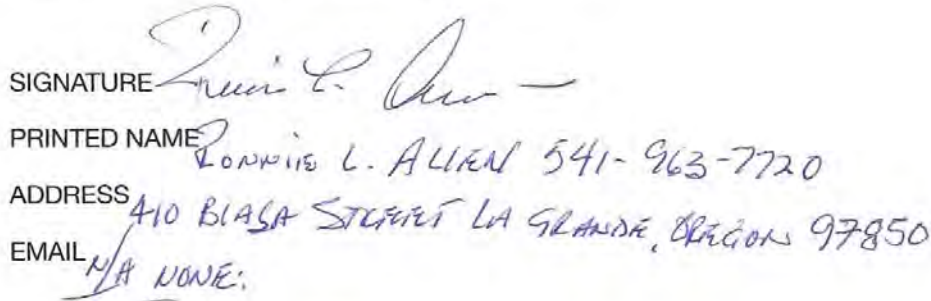 SIGNATURE
PRINTED NAME RONNIE L. ALLEN 541-963-7720
ADDRESS 410 BLAGA STREET LA GRANDE, OREGON 97850
EMAIL N/A NONE: